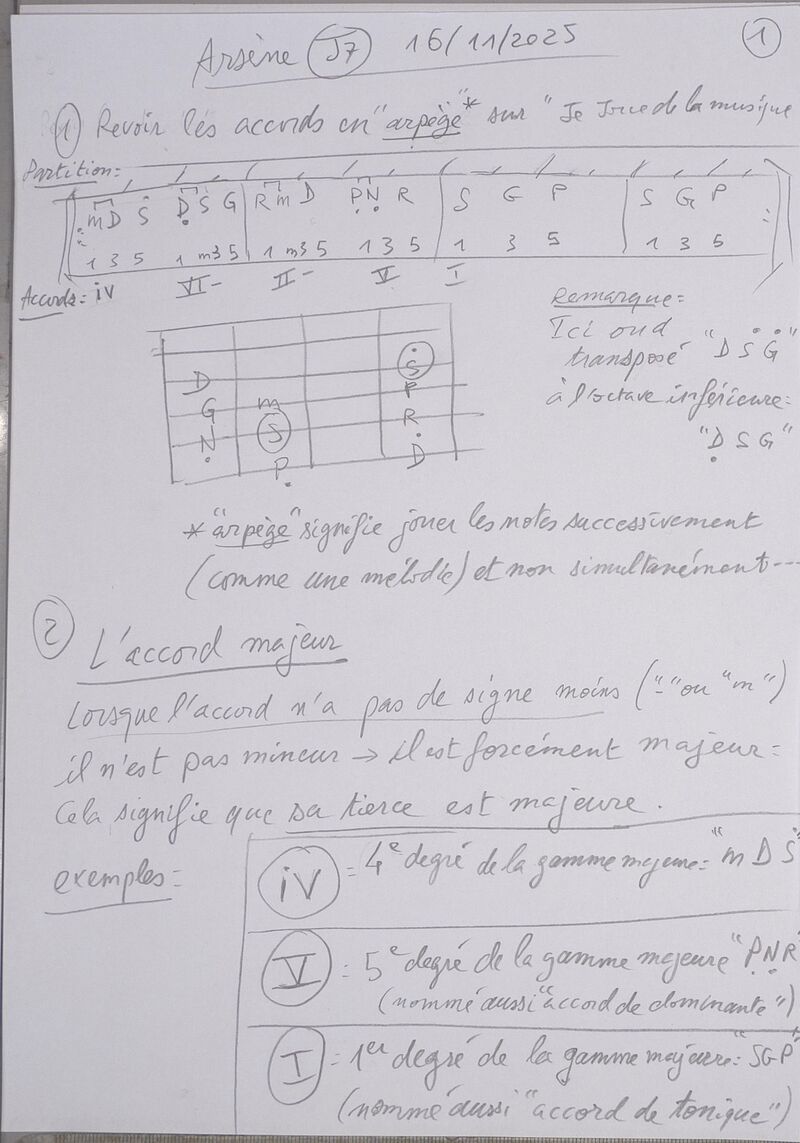 Arsène J7 16/11/2025 1
1 Revoir les accords en "arpège"* sur "Je Joue de la musique
Partition:
m D S D S G R m D P N R S G P S G P
1 3 5 1 m3 5 1 m3 5 1 3 5 1 3 5 1 3 5
Accords: iV VI- II- V I
Remarque:
Ici on a
transposé "D S G"
à l'octave inférieure:
"D S G"
D S
G m P
N S R
P D
* "arpège" signifie jouer les notes successivement
(comme une mélodie) et non simultanément...
2 L'accord majeur
Lorsque l'accord n'a pas de signe moins ("-" ou "m")
il n'est pas mineur → il est forcément majeur:
Cela signifie que sa tierce est majeure.
exemples:
iV = 4e degré de la gamme majeure: "m D S"
V = 5e degré de la gamme majeure "P N R"
(nommé aussi "accord de dominante")
I = 1er degré de la gamme majeure: "SGP"
(nommé aussi "accord de tonique")